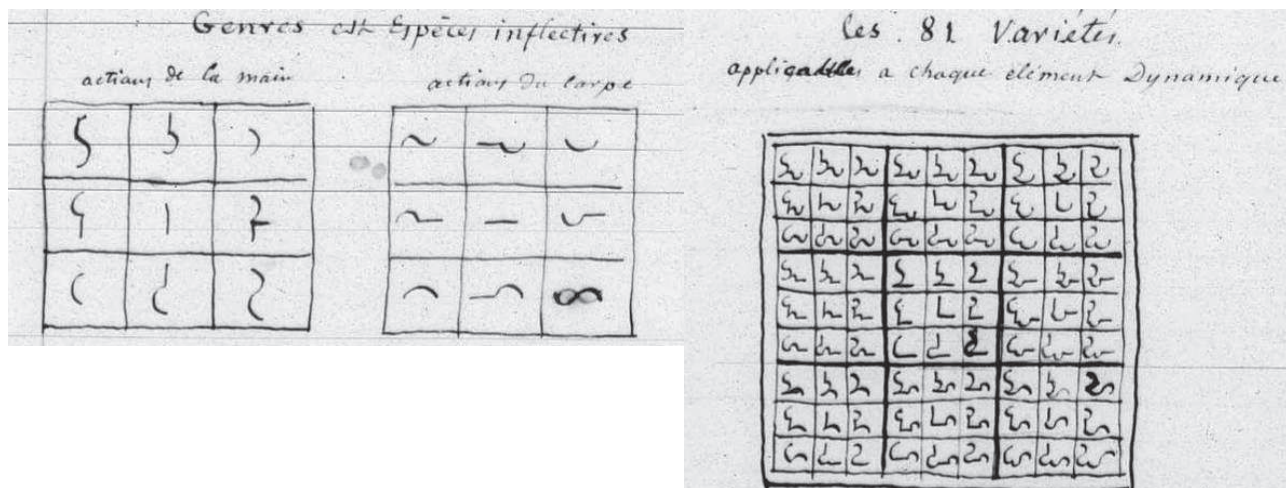 Genres est Espèces inflectives
actions de la main
actions du Carpe
les. 81 Variétés.
applicables a chaque élément Dynamique